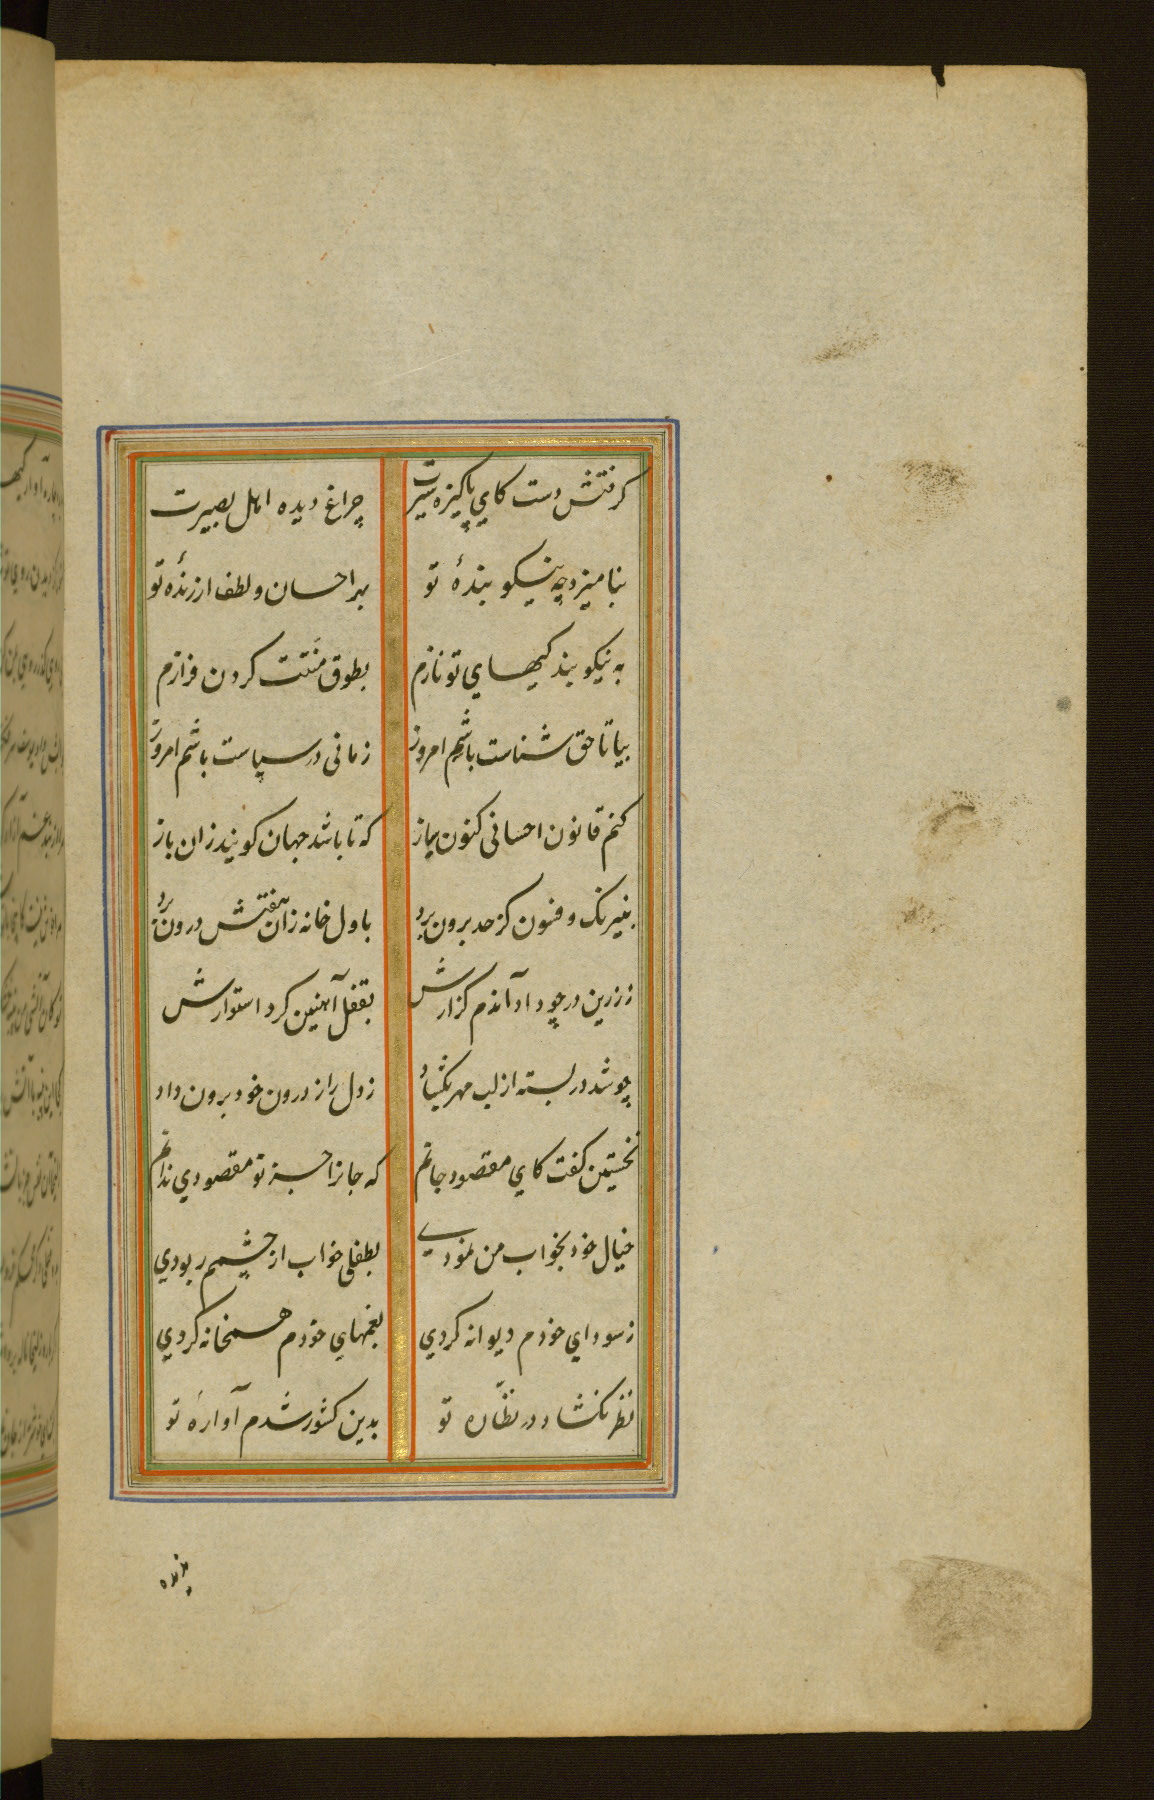 کرفتش دست کاي پاکیزه سیرت
چراغ دیده اهل بصیرت
بنامیزد چه نیکو بندهٔ تو
بهر احسان و لطف ارزندهٔ تو
به نیکو بندکیهاي تو نازم
بطوق منّتت کردن فرازم
بیا تا حق شناست باشم امروز
زمانی در سپاست باشم امروز
کنم قانون احسانی کنون ساز
که تا باشد جهان کویند زان باز
بنیرنک و فسون کز حد برون برد
باول خانه زان هفتش درون برد
ز زرین در چو داد آندم کزارش
بقفل آهنین کرد استوارش
چو شد در بسته از لب مهر بکشاد
ز دل راز درون خود برون داد
نخستین کفت کاي مقصود جانم
که جانرا جز تو مقصودي ندانم
خیال خود بخواب من نمودي
بطفلی خواب از چشمم ربودي
ز سوداي خودم دیوانه کردي
بغمهاي خودم همخانه کردي
نظر نکشاده در نظّاره تو
بدین کشور شدم آوارهٔ تو